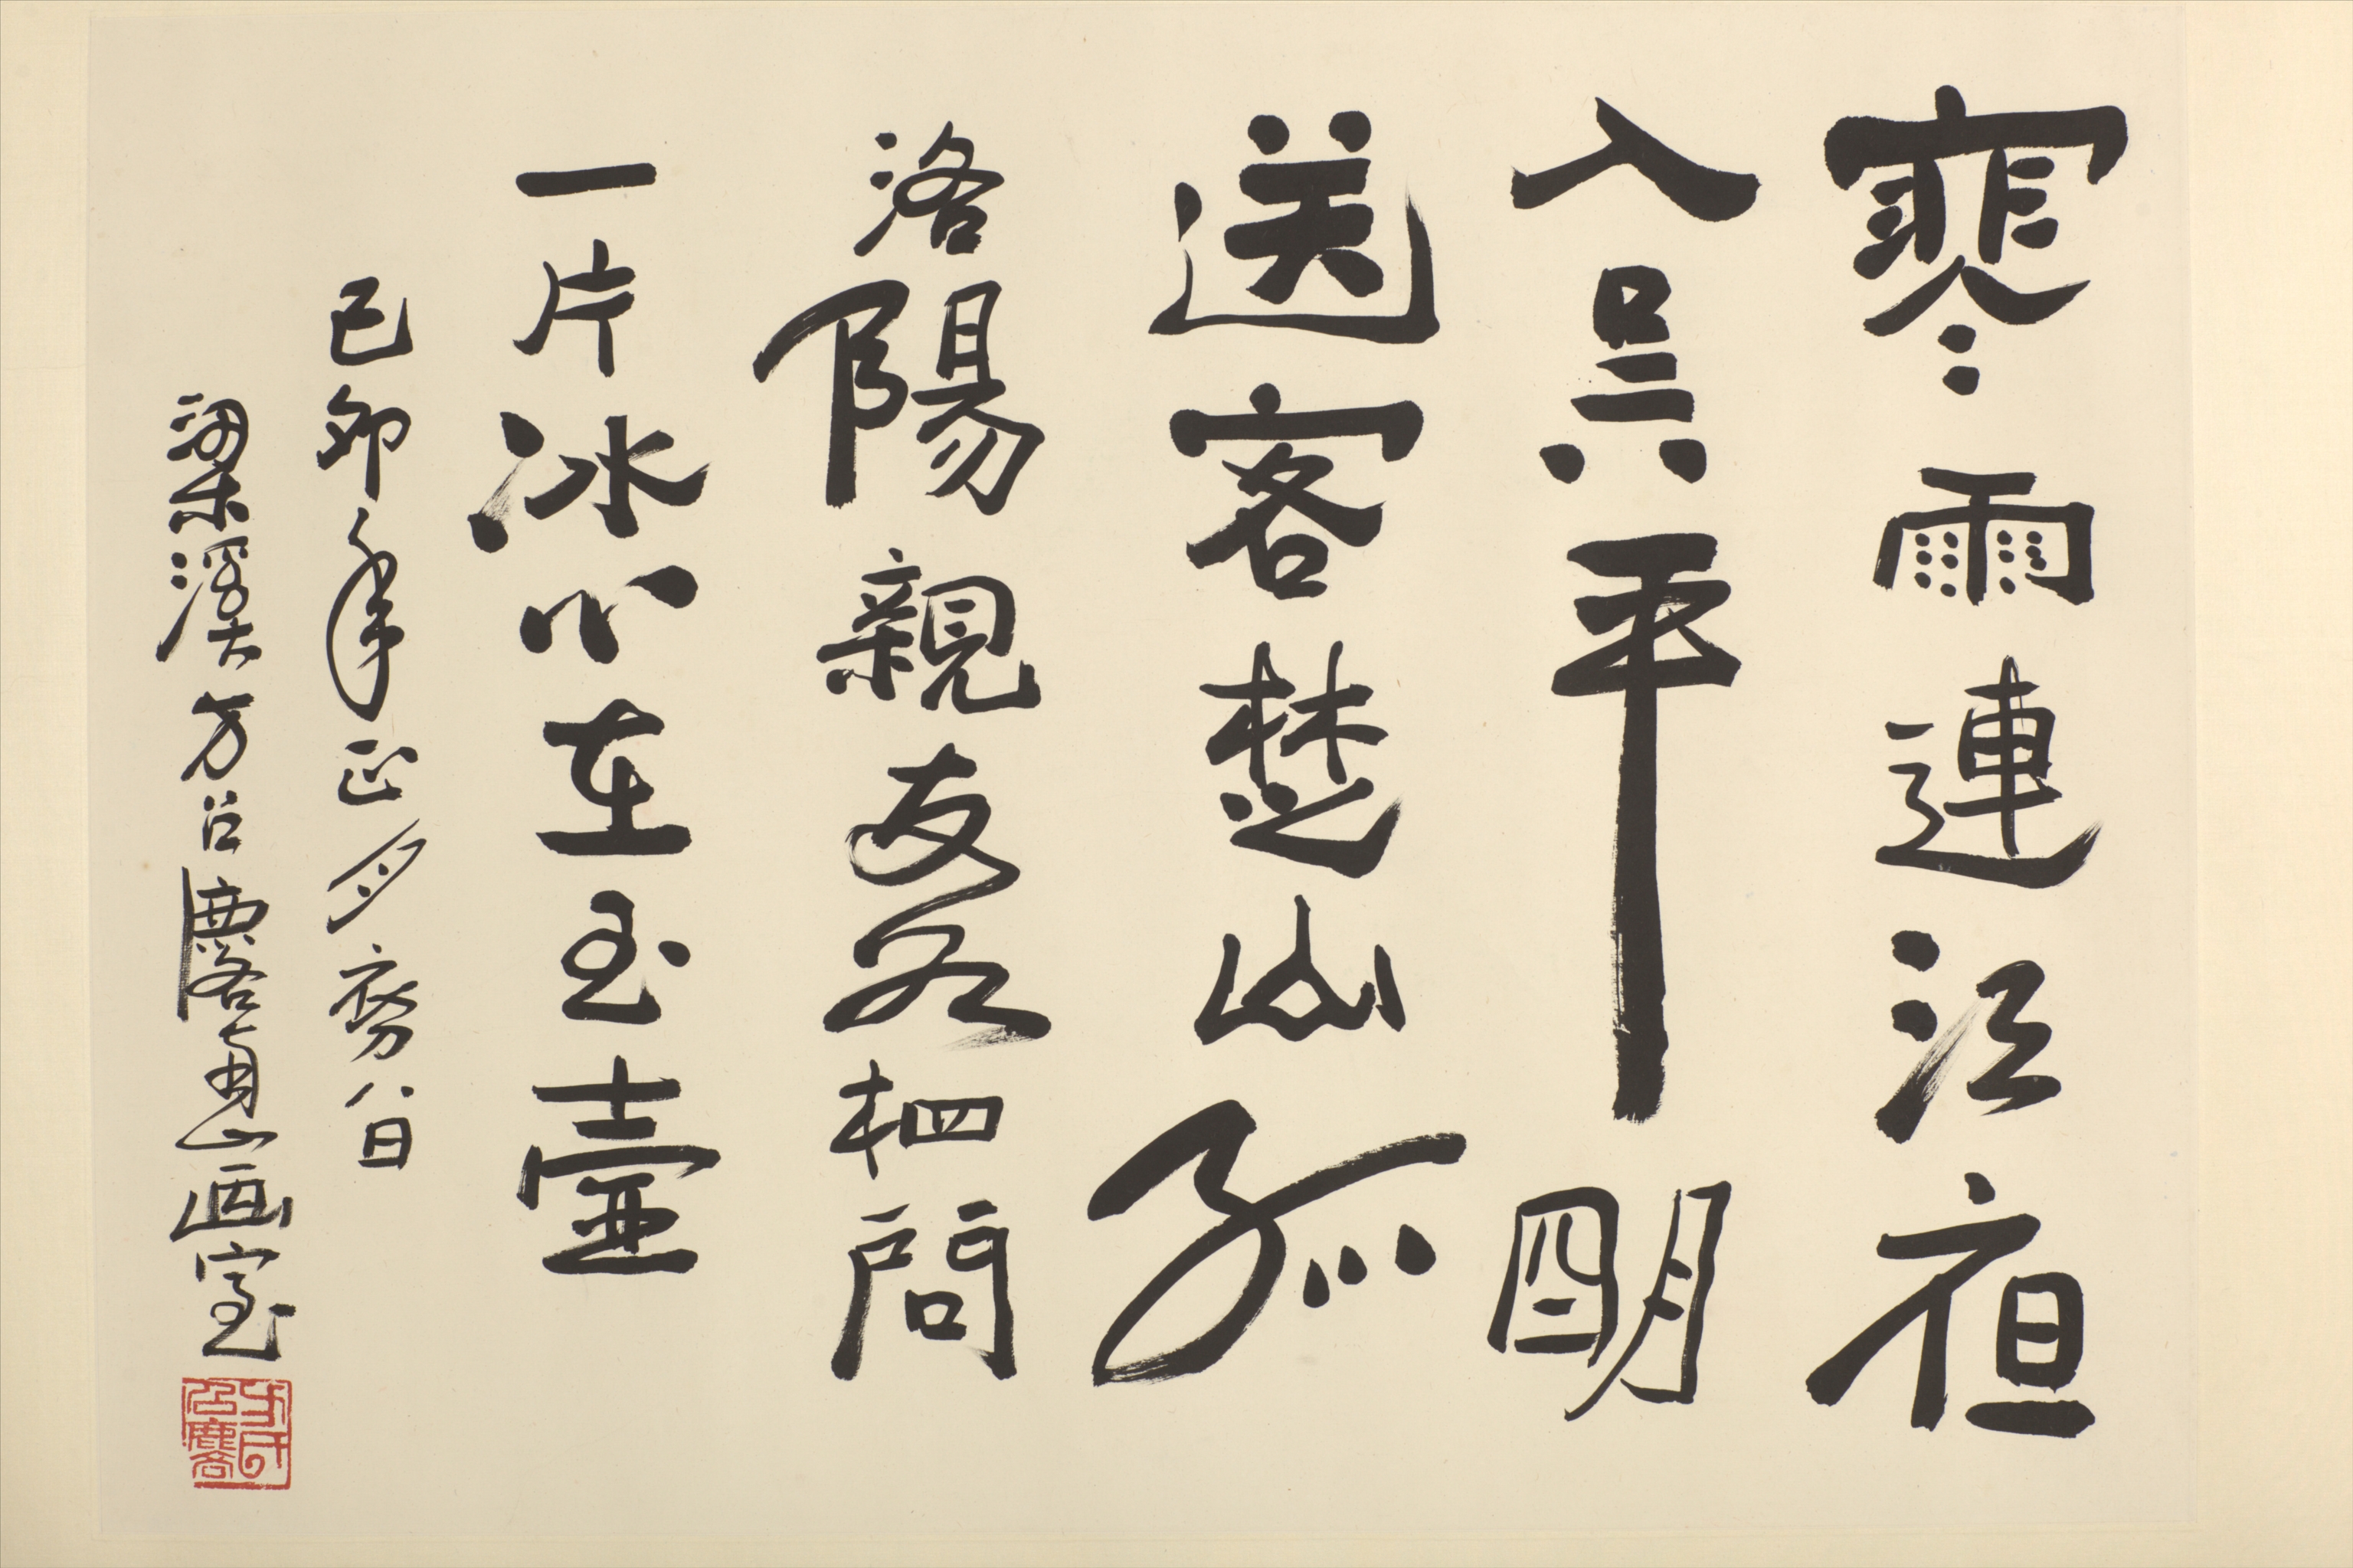 寒雨連江夜
入吳平明
送客楚山孤
洛陽親友如相問
一片冰心在玉壺
己卯年正月初八日
梁溪方召麐山画室
方氏召麐